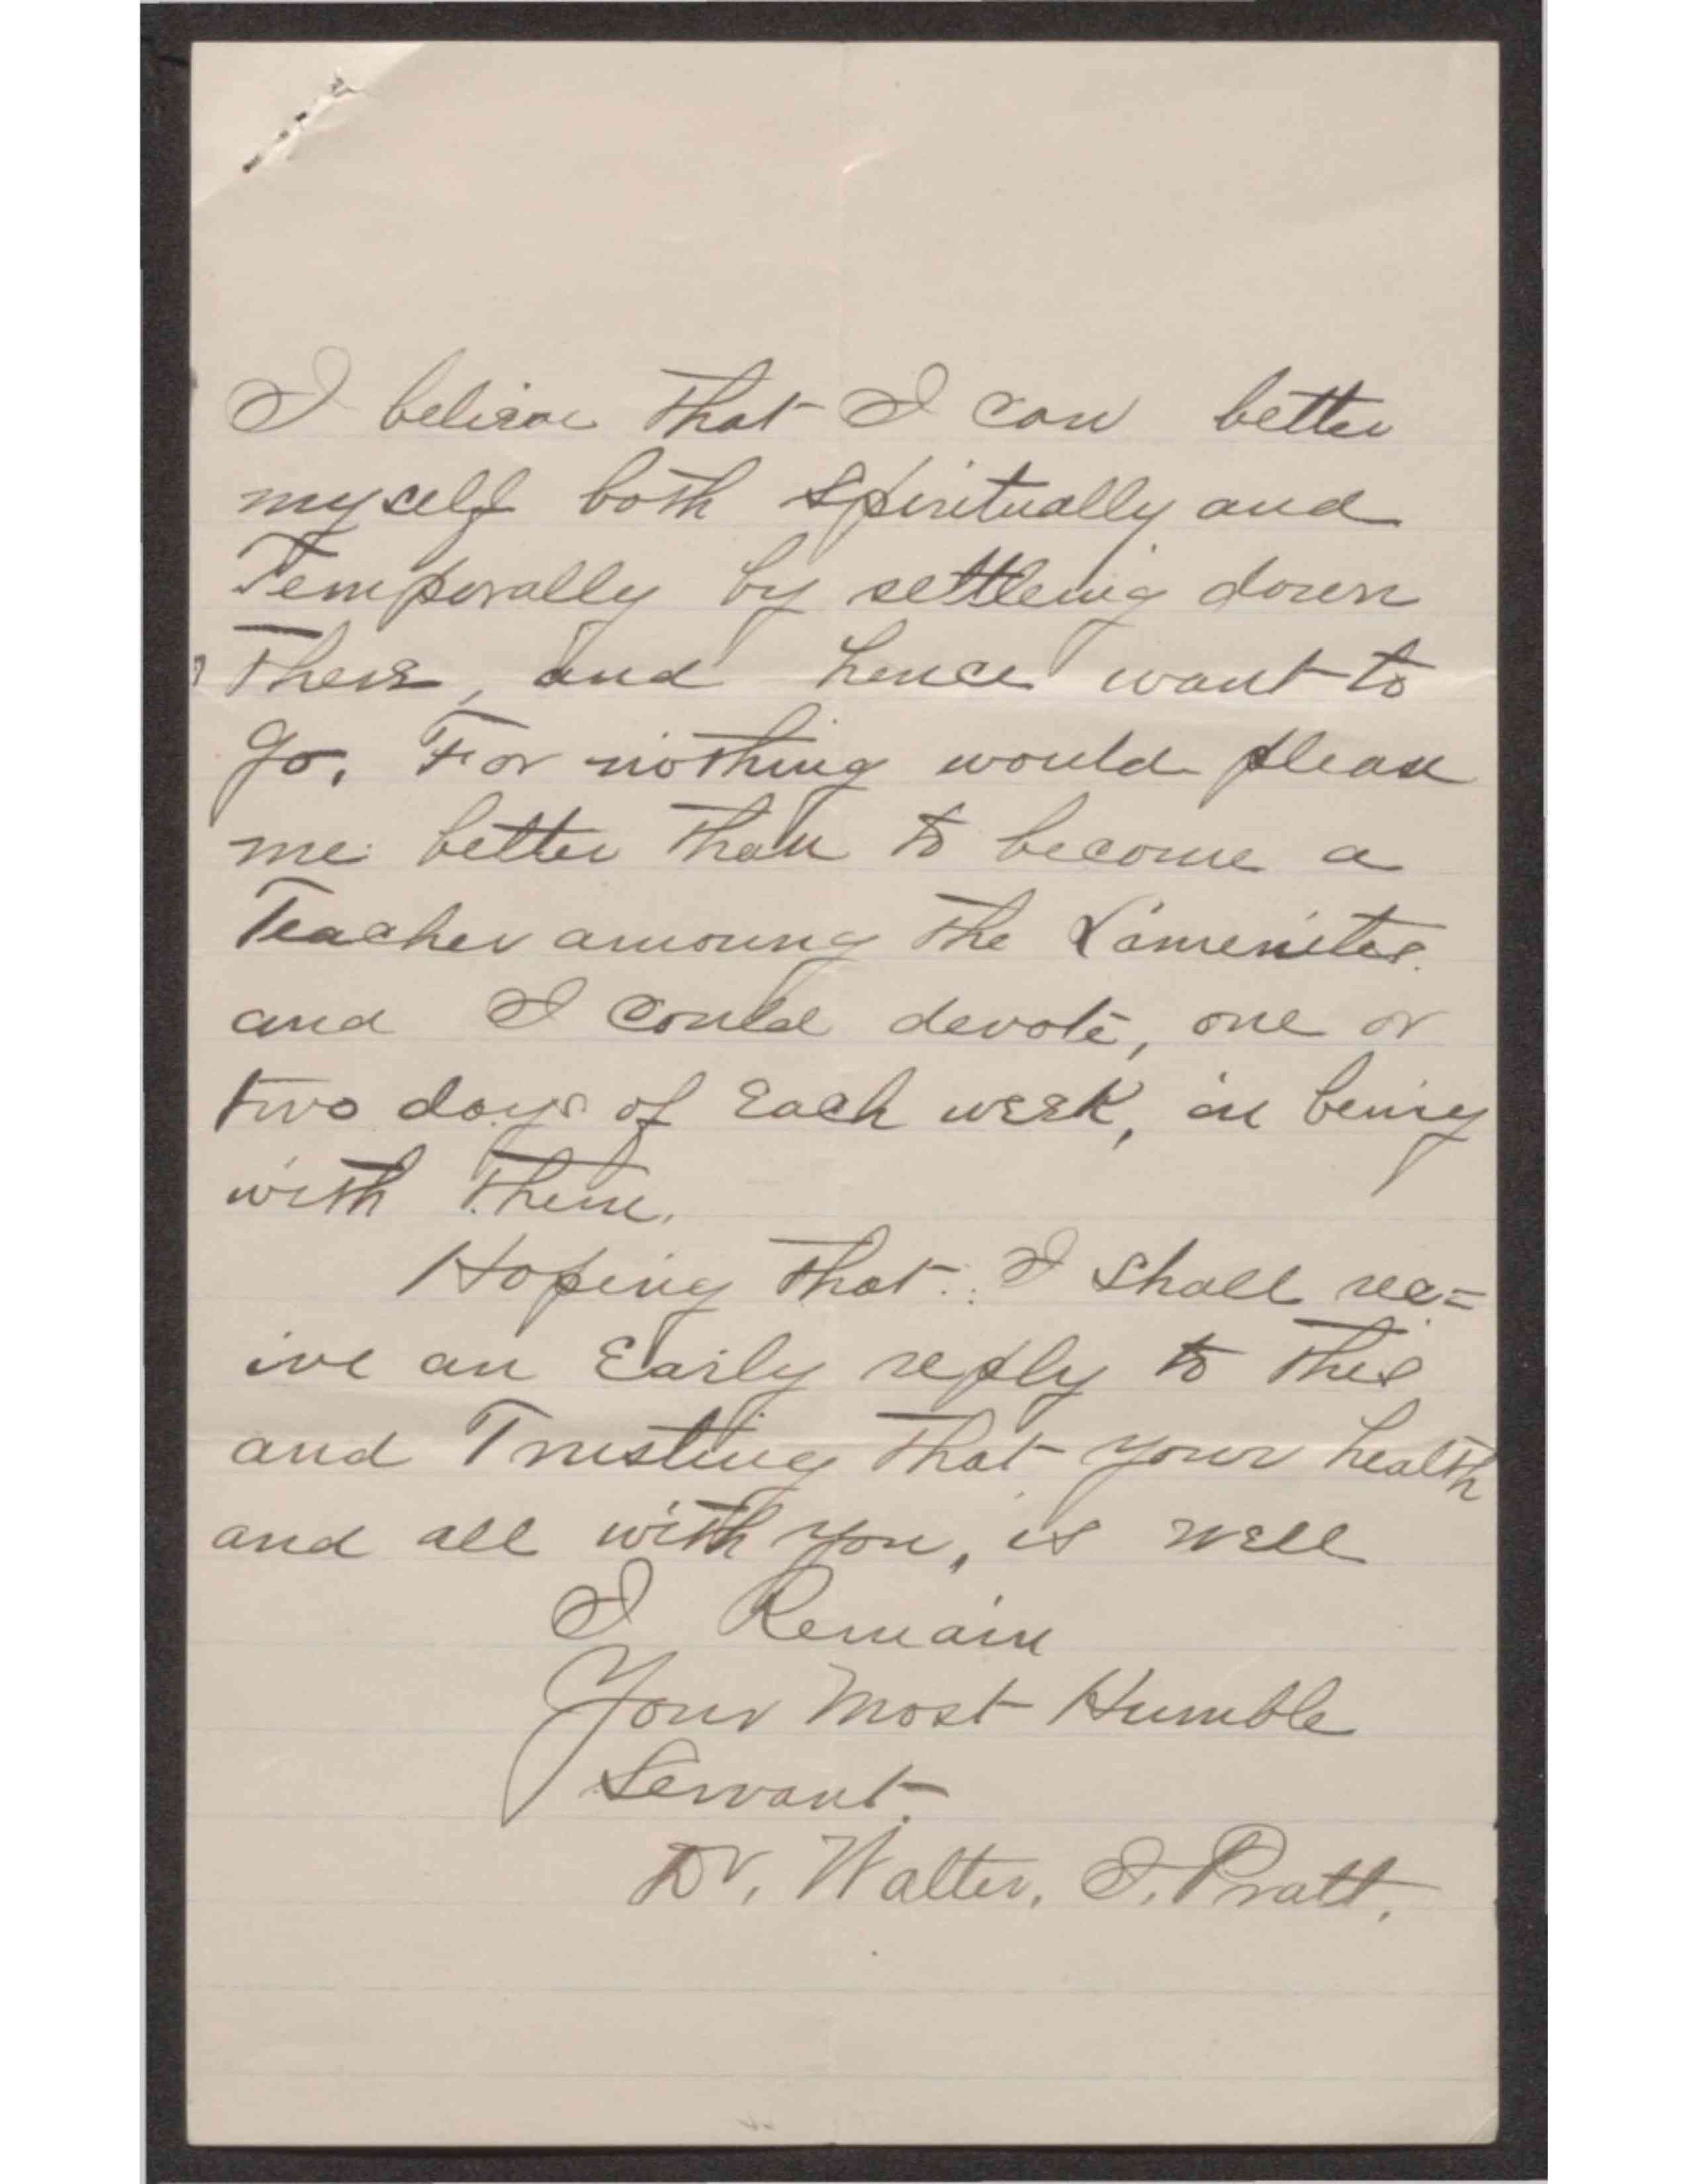 I believe that I can better
myself both spiritually and
Temporally by settleing down
There, and hence want to
go. For nothing would please
me better than to become a
Teacher amoung the Lamenites.
and I could devote, one or
two days of Each week, in being
with them.
Hoping that I shall rec=
ive an Early reply to this
and Trusting that your health
and all with you, is well
I Remain
Your Most Humble
Servant.
Dr. Walter, I. Pratt.